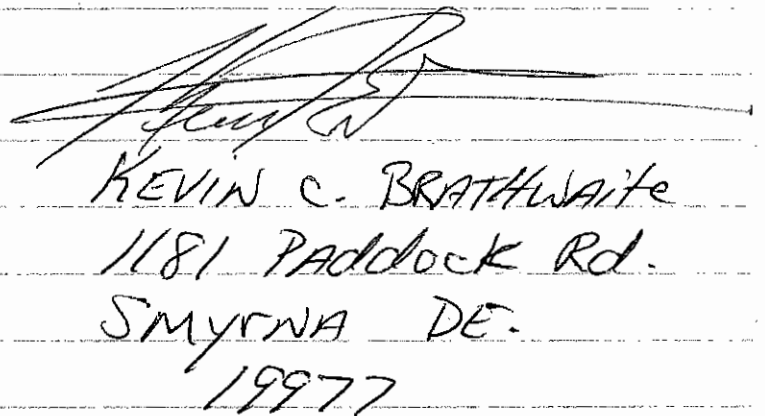 KEVIN C. BRATHWAITE
1181 PADDOCK Rd.
SMYRNA DE.
19977